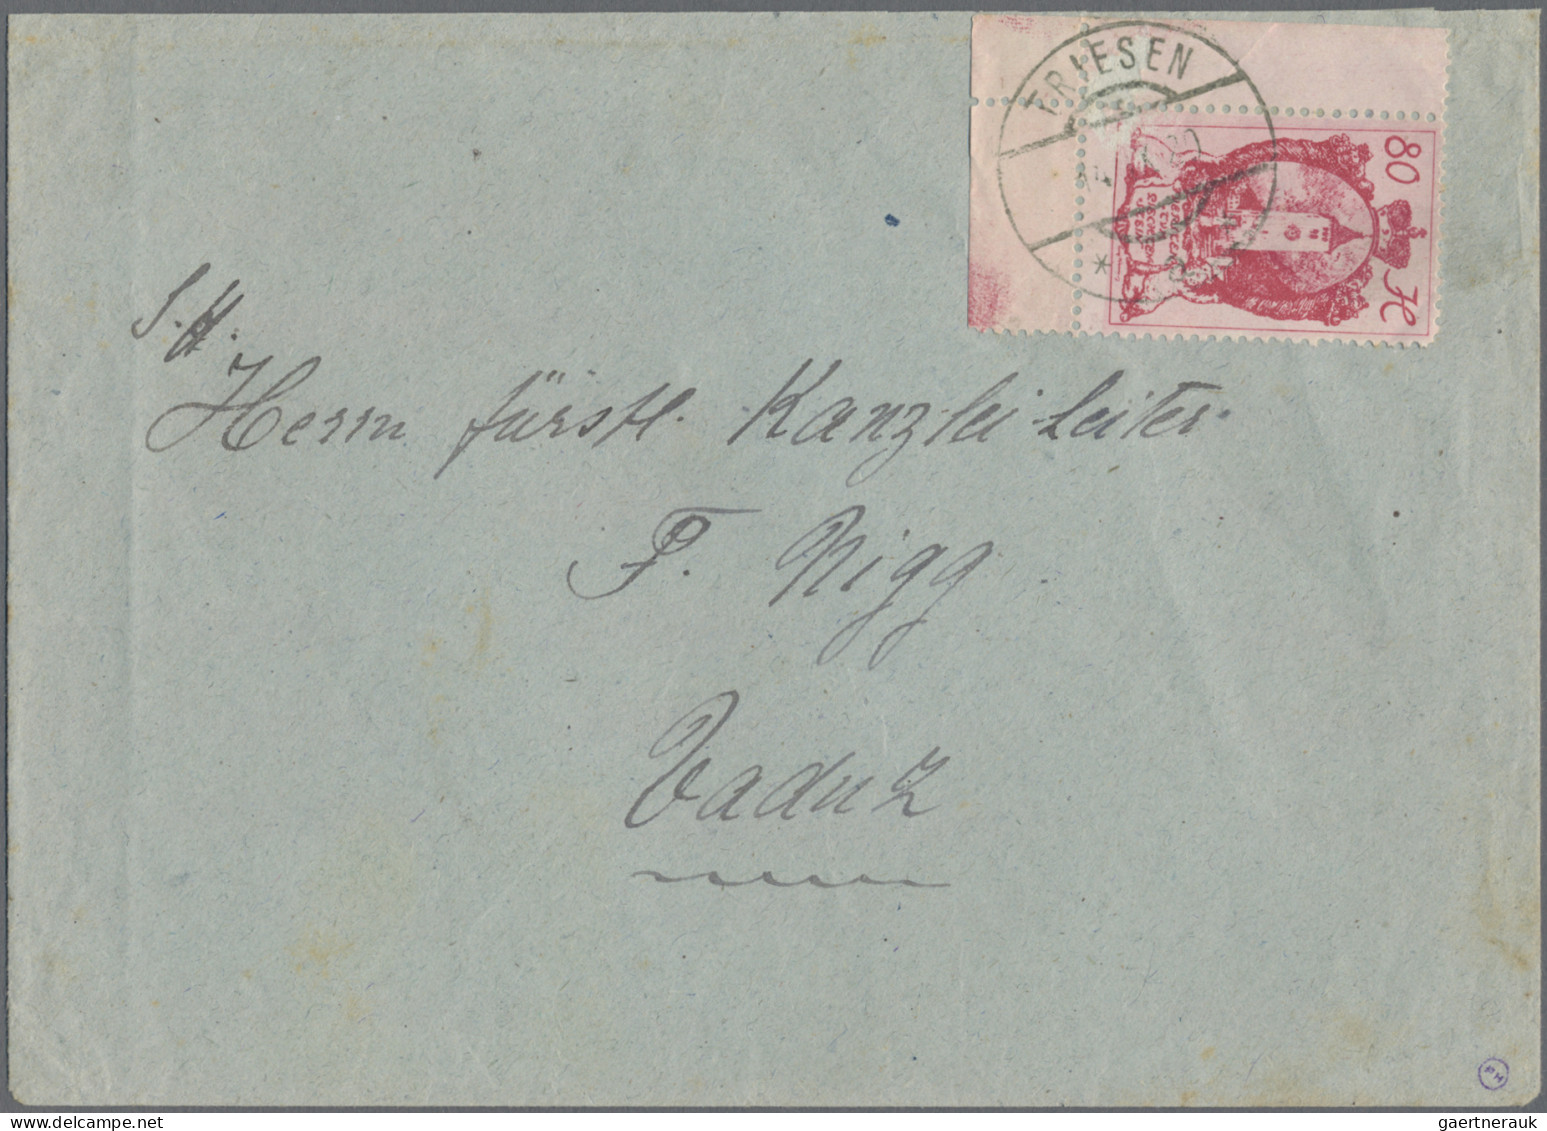 TRIESEN
80 H
S. H.
Herrn fürstl. Kanzlei-Leiter
F. Nigg
Vaduz
PH
gaertnerauk